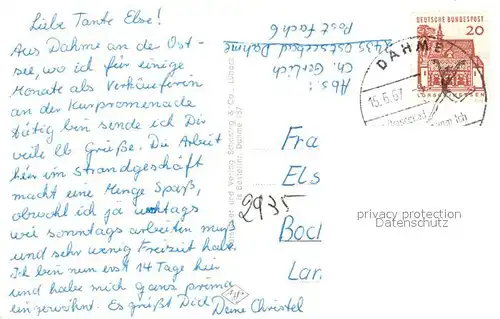 Liebe Tante Else!
Aus Dahme an der Ost-
see, wo ich für einige
Monate als Verkäuferin
an der Kurpromenade
tätig bin sende ich Dir
viele lb Grüße. Die Arbeit
hier im Strandgeschäft
macht eine Menge Spaß,
obwohl ich ja wochtags
wie sonntags arbeiten muß
und sehr wenig Freizeit habe.
Ich bin nun erst 14 Tage hier
und habe mich ganz prima
eingewöhnt. Es grüßt Dich
Deine Christel
Abs.:
Ch. Gerlich
2435 Ostseebad Dahme
Postfach 6
DEUTSCHE BUNDESPOST
20
DAHME
15.6.67
Fra
Els
2935
Boc
Lan
privacy protection
Datenschutz